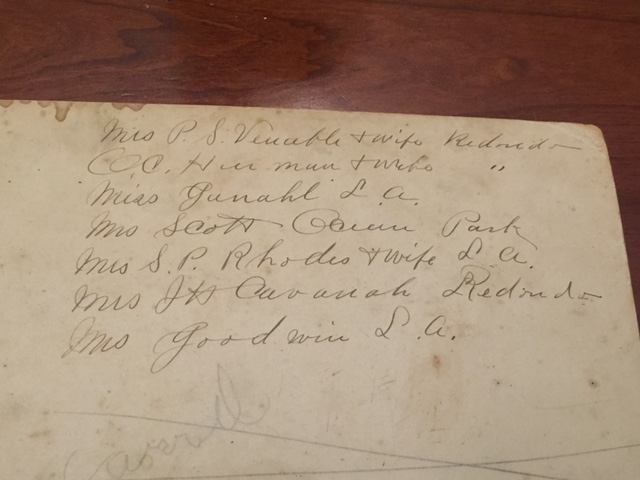 Mrs P. S. Venable + wife Redondo
C.C. Herman + wife "
Miss Gunahl L.A.
Mrs Scott Ocean Park
Mrs S.P. Rhodes + wife L.A.
Mrs JH Cavanah Redondo
Mrs Goodwin L.A.